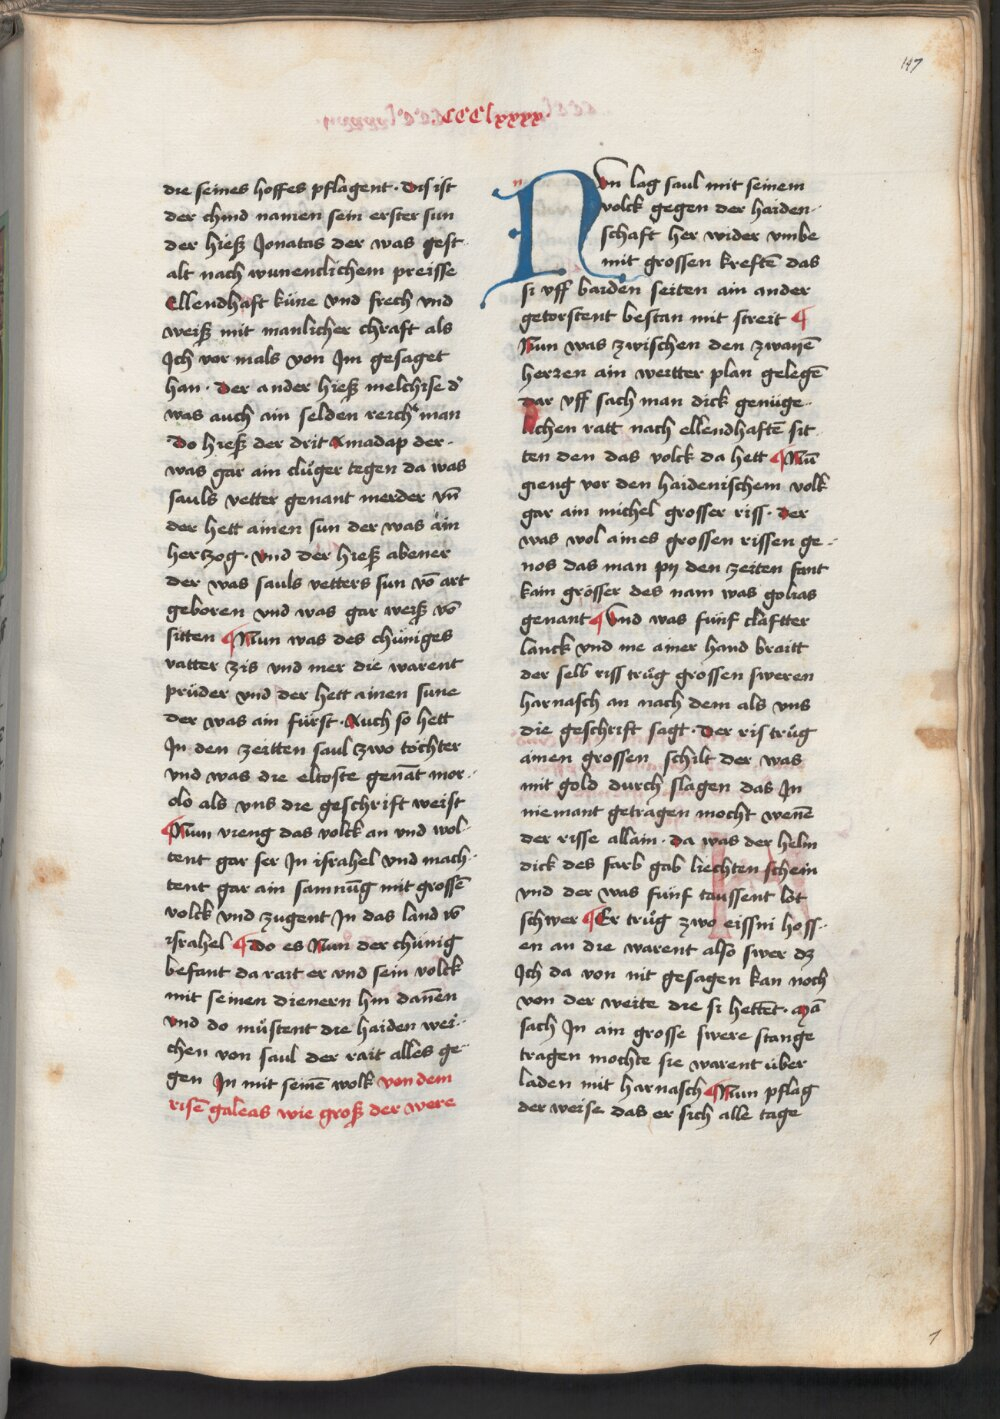 147
CCClxxxx
die seines hoffes pflagent · Dis ist
der chind namen sein erster sun
der hieß Jonatas der was gest
alt nach wunenclichem preisse
Ellendhaft küne vnd frech vnd
weiß mit manlicher chraft als
Ich vor mals von Im gesaget
han · Der ander hieß melchise d'
was auch ain selden reich' man
Do hieß der drit Amadap der
was gar ain clůger tegen da was
sauls vetter genant merder vn̄
der hett ainen sun der was ain
hertzog · Vnd der hieß abener
der was sauls vetters sun vō art
geboren vnd was gar weiß vō
sitten ¶ Nun was des chüniges
vatter zis vnd mer die warent
prüder vnd der hett ainen sune
der was ain fürst · Auch so hett
In den zeitten saul zwo töchter
vnd was die eltoste genāt mor-
olo als vns die geschrift weist
¶ Nun vieng das volck an vnd wol-
tent gar ser In israhel vnd mach-
tent gar ain samnūg mit grossē
volck vnd zugent In das land vō
israhel ¶ Do es Nun der chünig
befant da rait er vnd sein volck
mit seinen dienern hin dannen
Vnd do můstent die haiden wei-
chen von saul der rait alles ge-
gen In mit seinē wolk von dem
risē galeas wie groß der were
NVn lag saul mit seinem
volck gegen der haiden-
schaft her wider vmbe
mit grossen kreftē das
si vff baiden seiten ain ander
getorstent bestan mit streit ¶
Nun was zwischen den zwayē
herren ain weitter plan gelegē
Dar vff sach man dick genüge-
lichen ratt nach ellendhaftē sit
ten den das volck da hett ¶ Nū
gieng vor den haidenischem volk
gar ain michel grosser riss · Der
was wol aines grossen rissen ge-
nos das man py den zeiten fant
kain grösser des nam was golias
genant ¶ Vnd was fünf claftter
lanck vnd me ainer hand braitt
der selb riss trůg grossen sweren
harnasch an nach dem als vns
die geschrift sagt · Der ris trůg
ainen grossen schilt der was
mit gold durch slagen das In
niemant getragen mocht wenē
der risse allain · da was der helm
dick des farb gab liechten schein
vnd der was funf taussent lot
schwer ¶ Er trůg zwo eissni hoss-
en an die warent also swer dz
Ich da von nit gesagen kan noch
von der weite die si hettēt · Mā
sach In ain grosse swere stange
tragen mochte sie warent über
laden mit harnasch ¶ Nun pflag
der weise das er sich alle tage